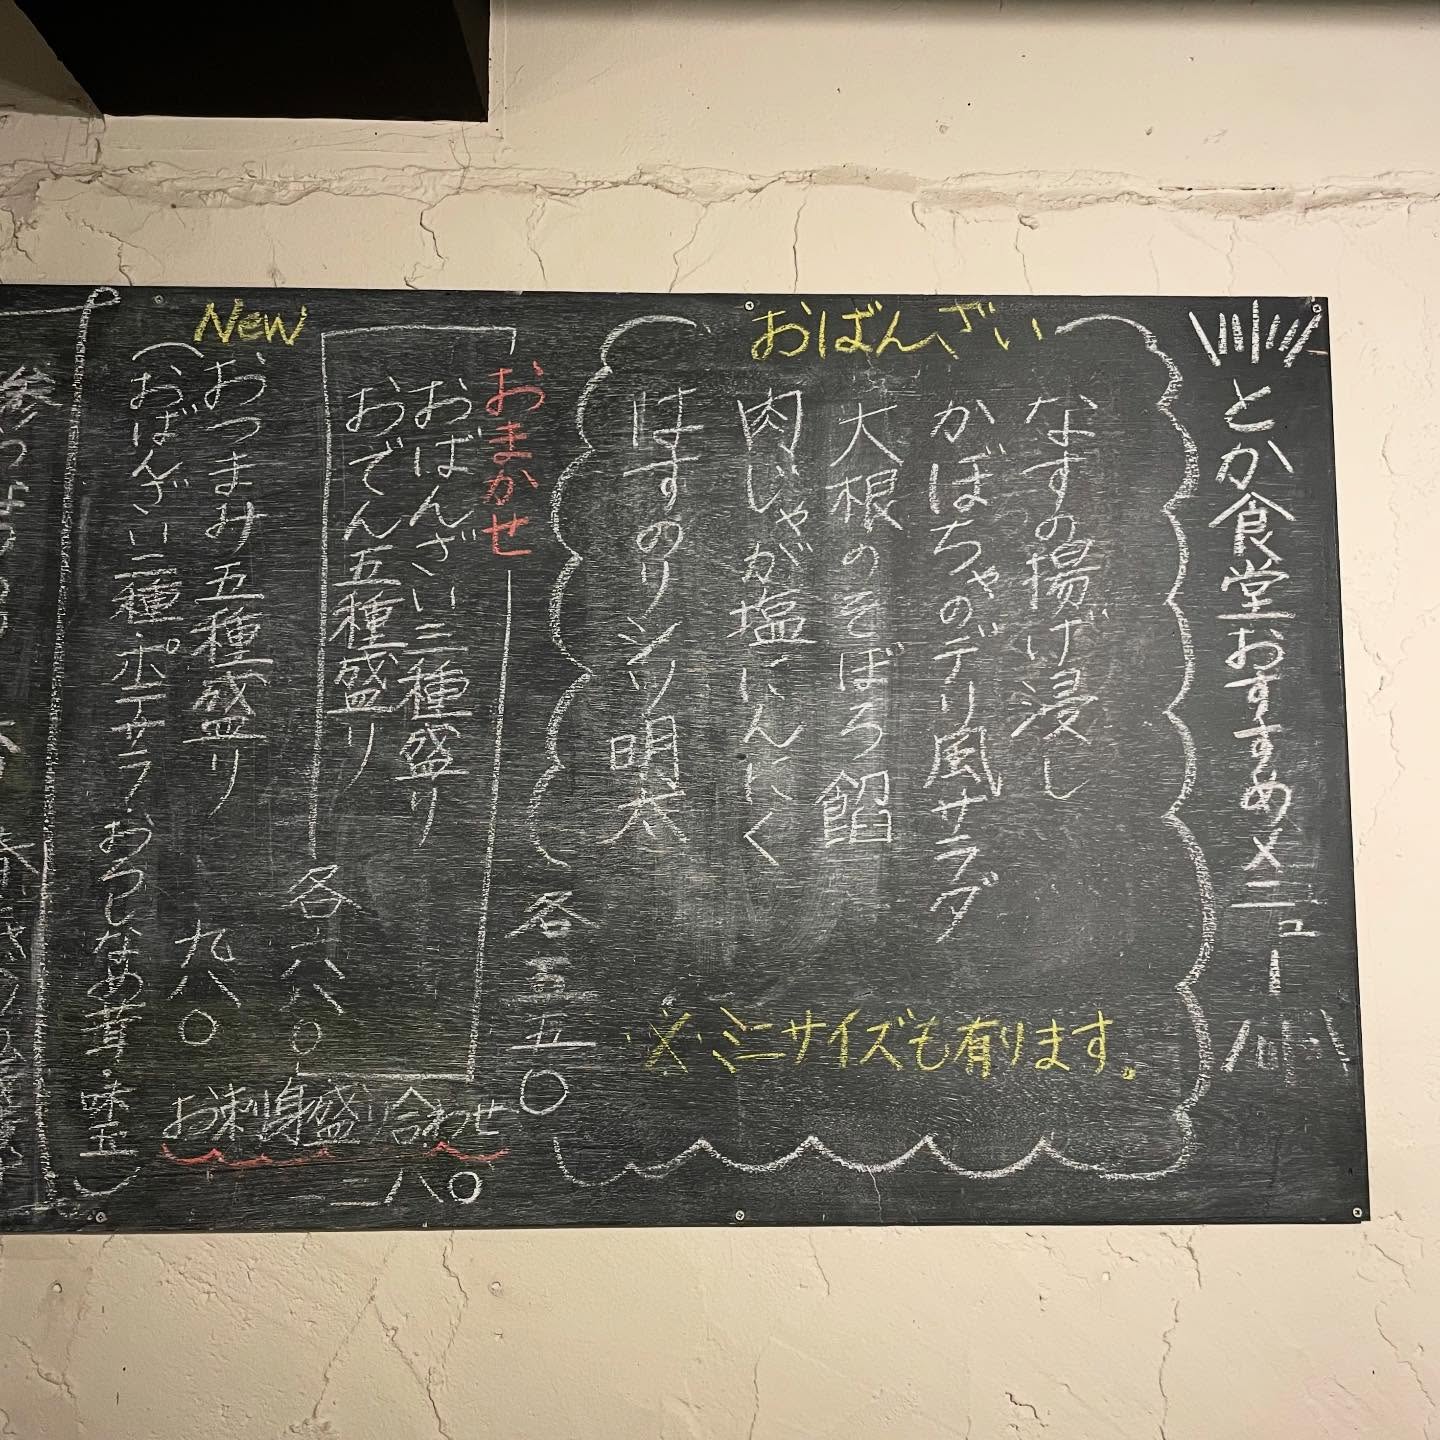 とか食堂おすすめメニュー
おばんざい
なすの揚げ浸し
かぼちゃのデリ風サラダ
大根のそぼろ餡
肉じゃが塩にんにく
はすのリンツ明太
※ミニサイズも有ります。
各三五〇
おまかせ
おばんざい三種盛り
おでん五種盛り
各六八〇
お刺身盛り合わせ
一二八〇
New
おつまみ五種盛り
九八〇
(おばんざい二種・ポテサラ・おろしなめ茸・味玉)